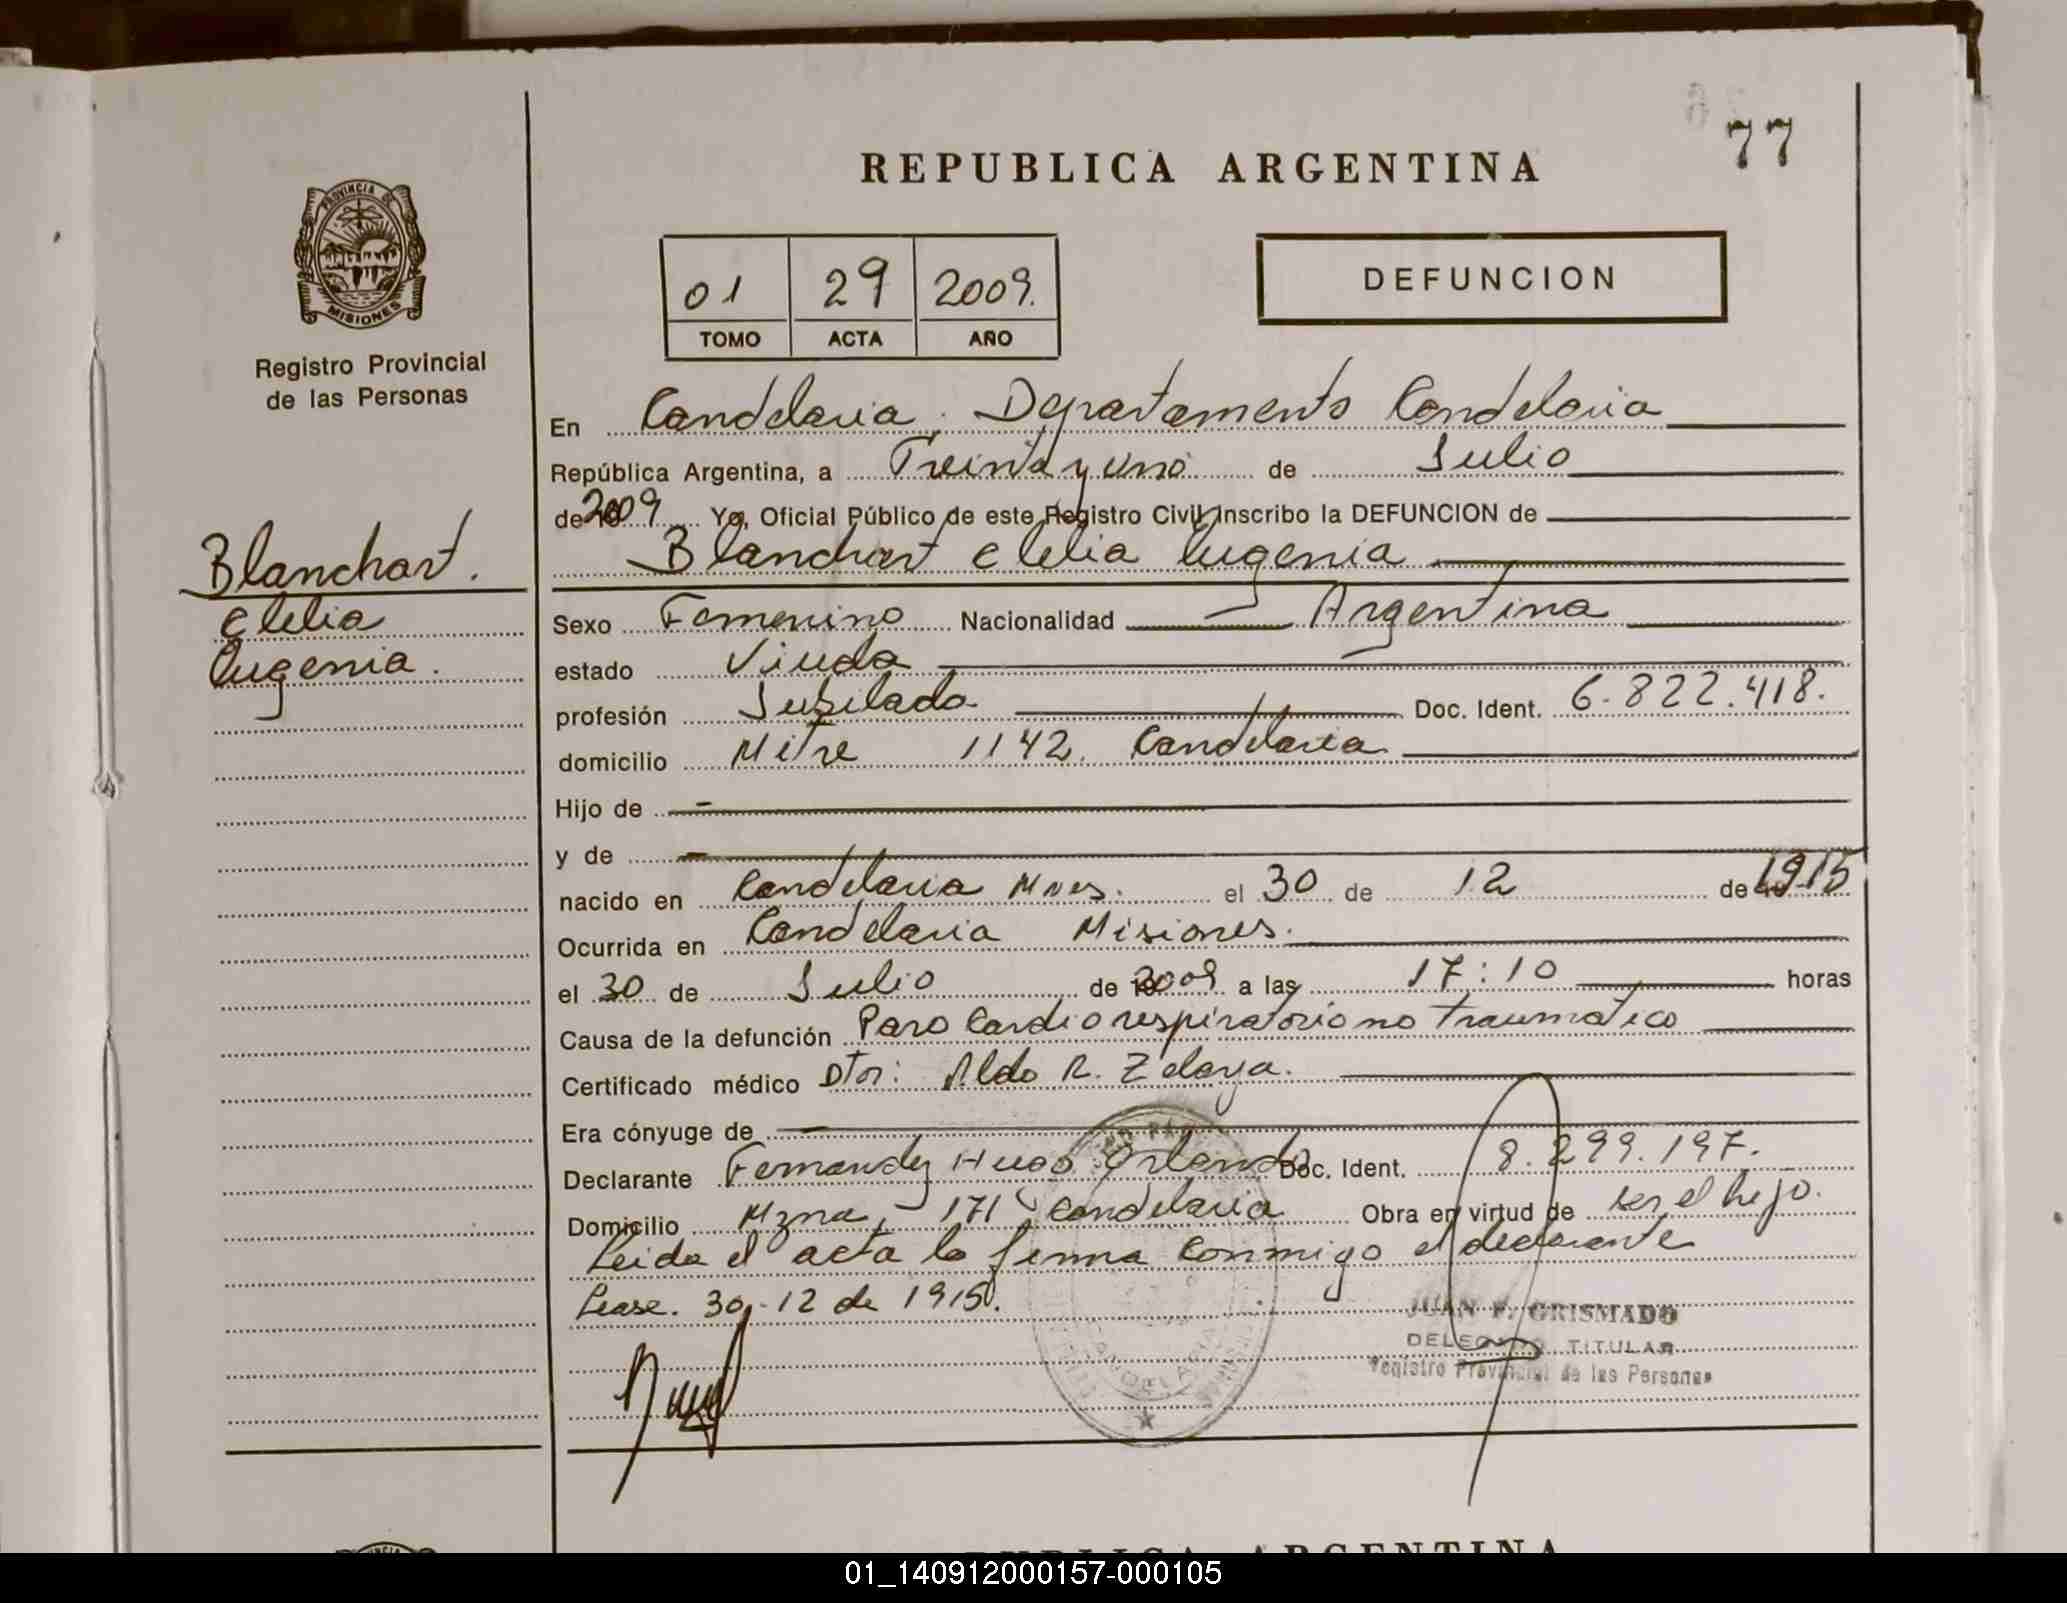 77
REPUBLICA ARGENTINA
PROVINCIA DE
MISIONES
Registro Provincial
de las Personas
01 29 2009.
TOMO ACTA AÑO
DEFUNCION
En Candelaria. Departamento Candelaria
República Argentina, a Treinta y uno de Julio
de 2009 Yo, Oficial Público de este Registro Civil Inscribo la DEFUNCION de
Blanchart Clelia Eugenia
Blanchart.
Clelia
Eugenia.
Sexo Femenino Nacionalidad Argentina
estado Viuda
profesión Jubilada Doc. Ident. 6.822.418.
domicilio Mitre 1142. Candelaria
Hijo de
y de
nacido en Candelaria Mnes. el 30 de 12 de 1915
Ocurrida en Candelaria Misiones.
el 30 de Julio de 2009 a las 17:10 horas
Causa de la defunción Paro Cardiorespiratorio no traumatico
Certificado médico Dtor: Aldo R. Zelaya.
Era cónyuge de
Declarante Fernandez Hugo Orlando Doc. Ident. 8.299.197.
Domicilio Mzna, 171 Candelaria Obra en virtud de ser el hijo.
Leida el acta la firma conmigo el declarante
Lease. 30-12 de 1915.
JUAN F. GRISMADO
DELEGADO TITULAR
Registro Provincial de las Personas
CANDELARIA
REPUBLICA ARGENTINA
01_140912000157-000105